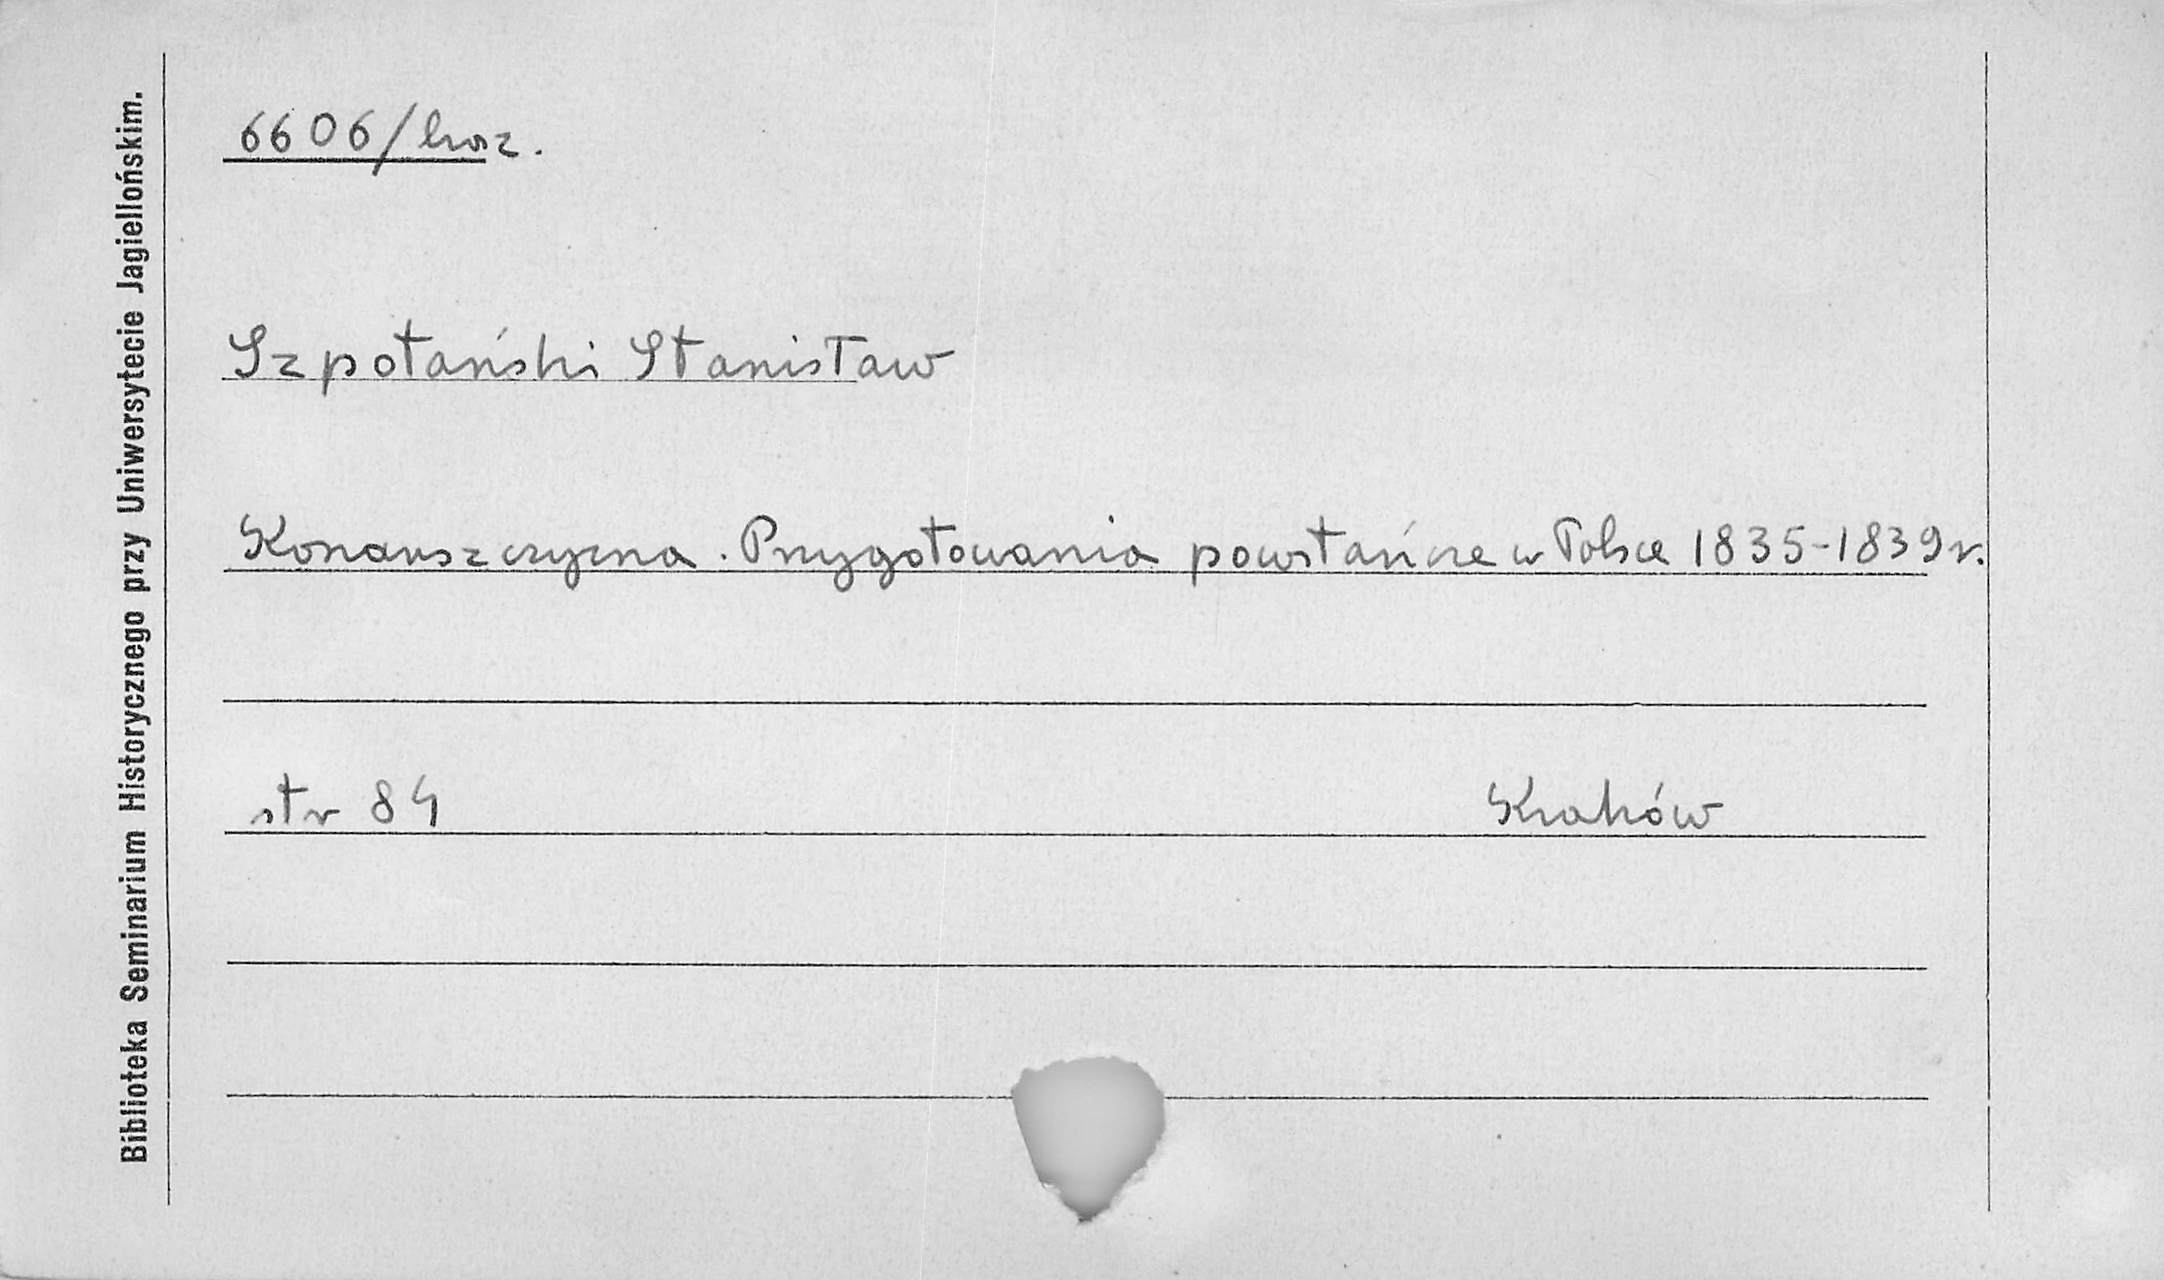 Biblioteka Seminarium Historycznego przy Uniwersytecie Jagiellońskim.
6606/
Szpotański Stanisław
Konarszczyzna. Przygotowania powstańcze w Polsce 1835-1839 r.
str 84 Kraków